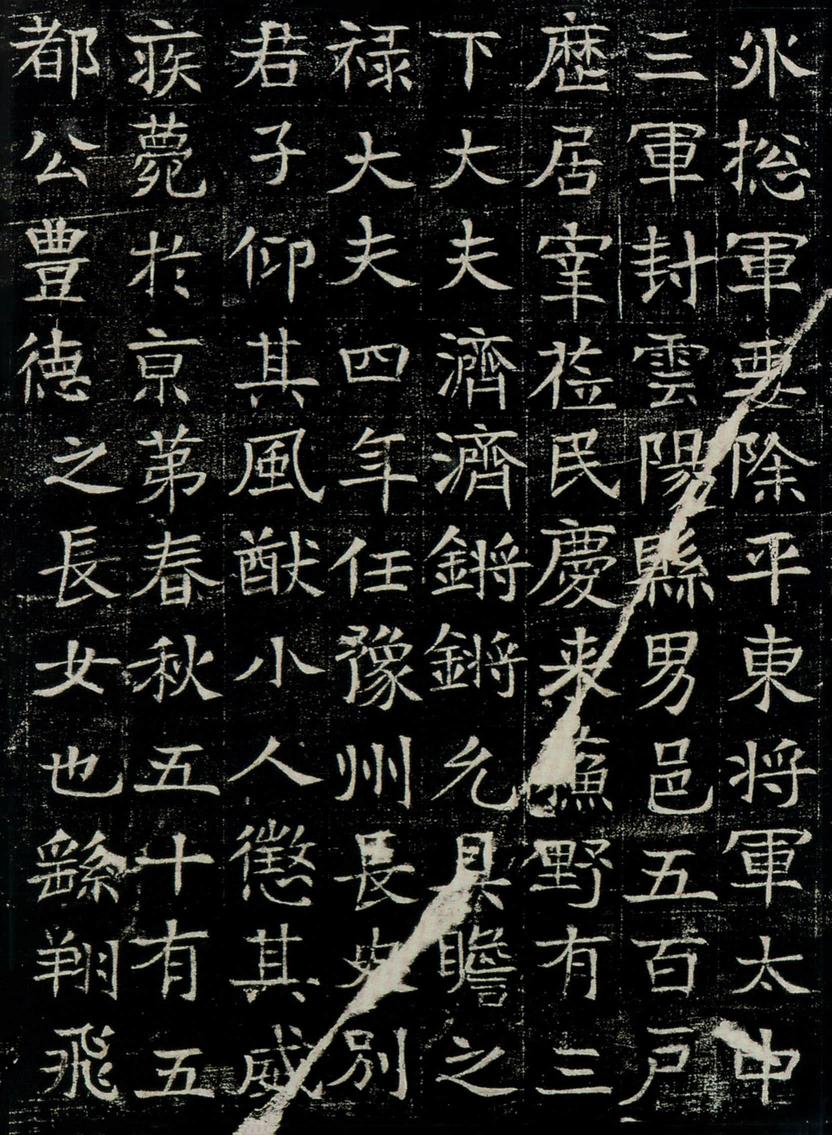 外捴軍要除平東将軍太中
三軍封雲陽縣男邑五百戶
歷居宰莅民慶来蘓野有三
下大夫濟濟鏘鏘允具瞻之
禄大夫四年任豫州長史別
君子仰其風猷小人懲其威
疾薨於京苐春秋五十有五
都公豊德之長女也繇翔飛